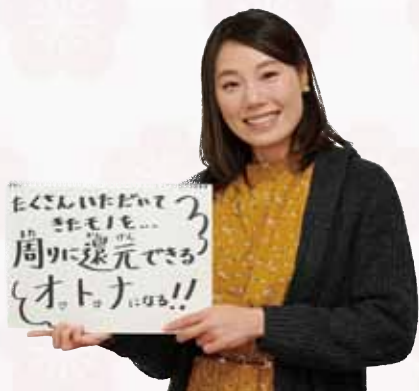 たくさんいただいて
きたモノを...
周りに還元できる
オ。ト。ナになる!!